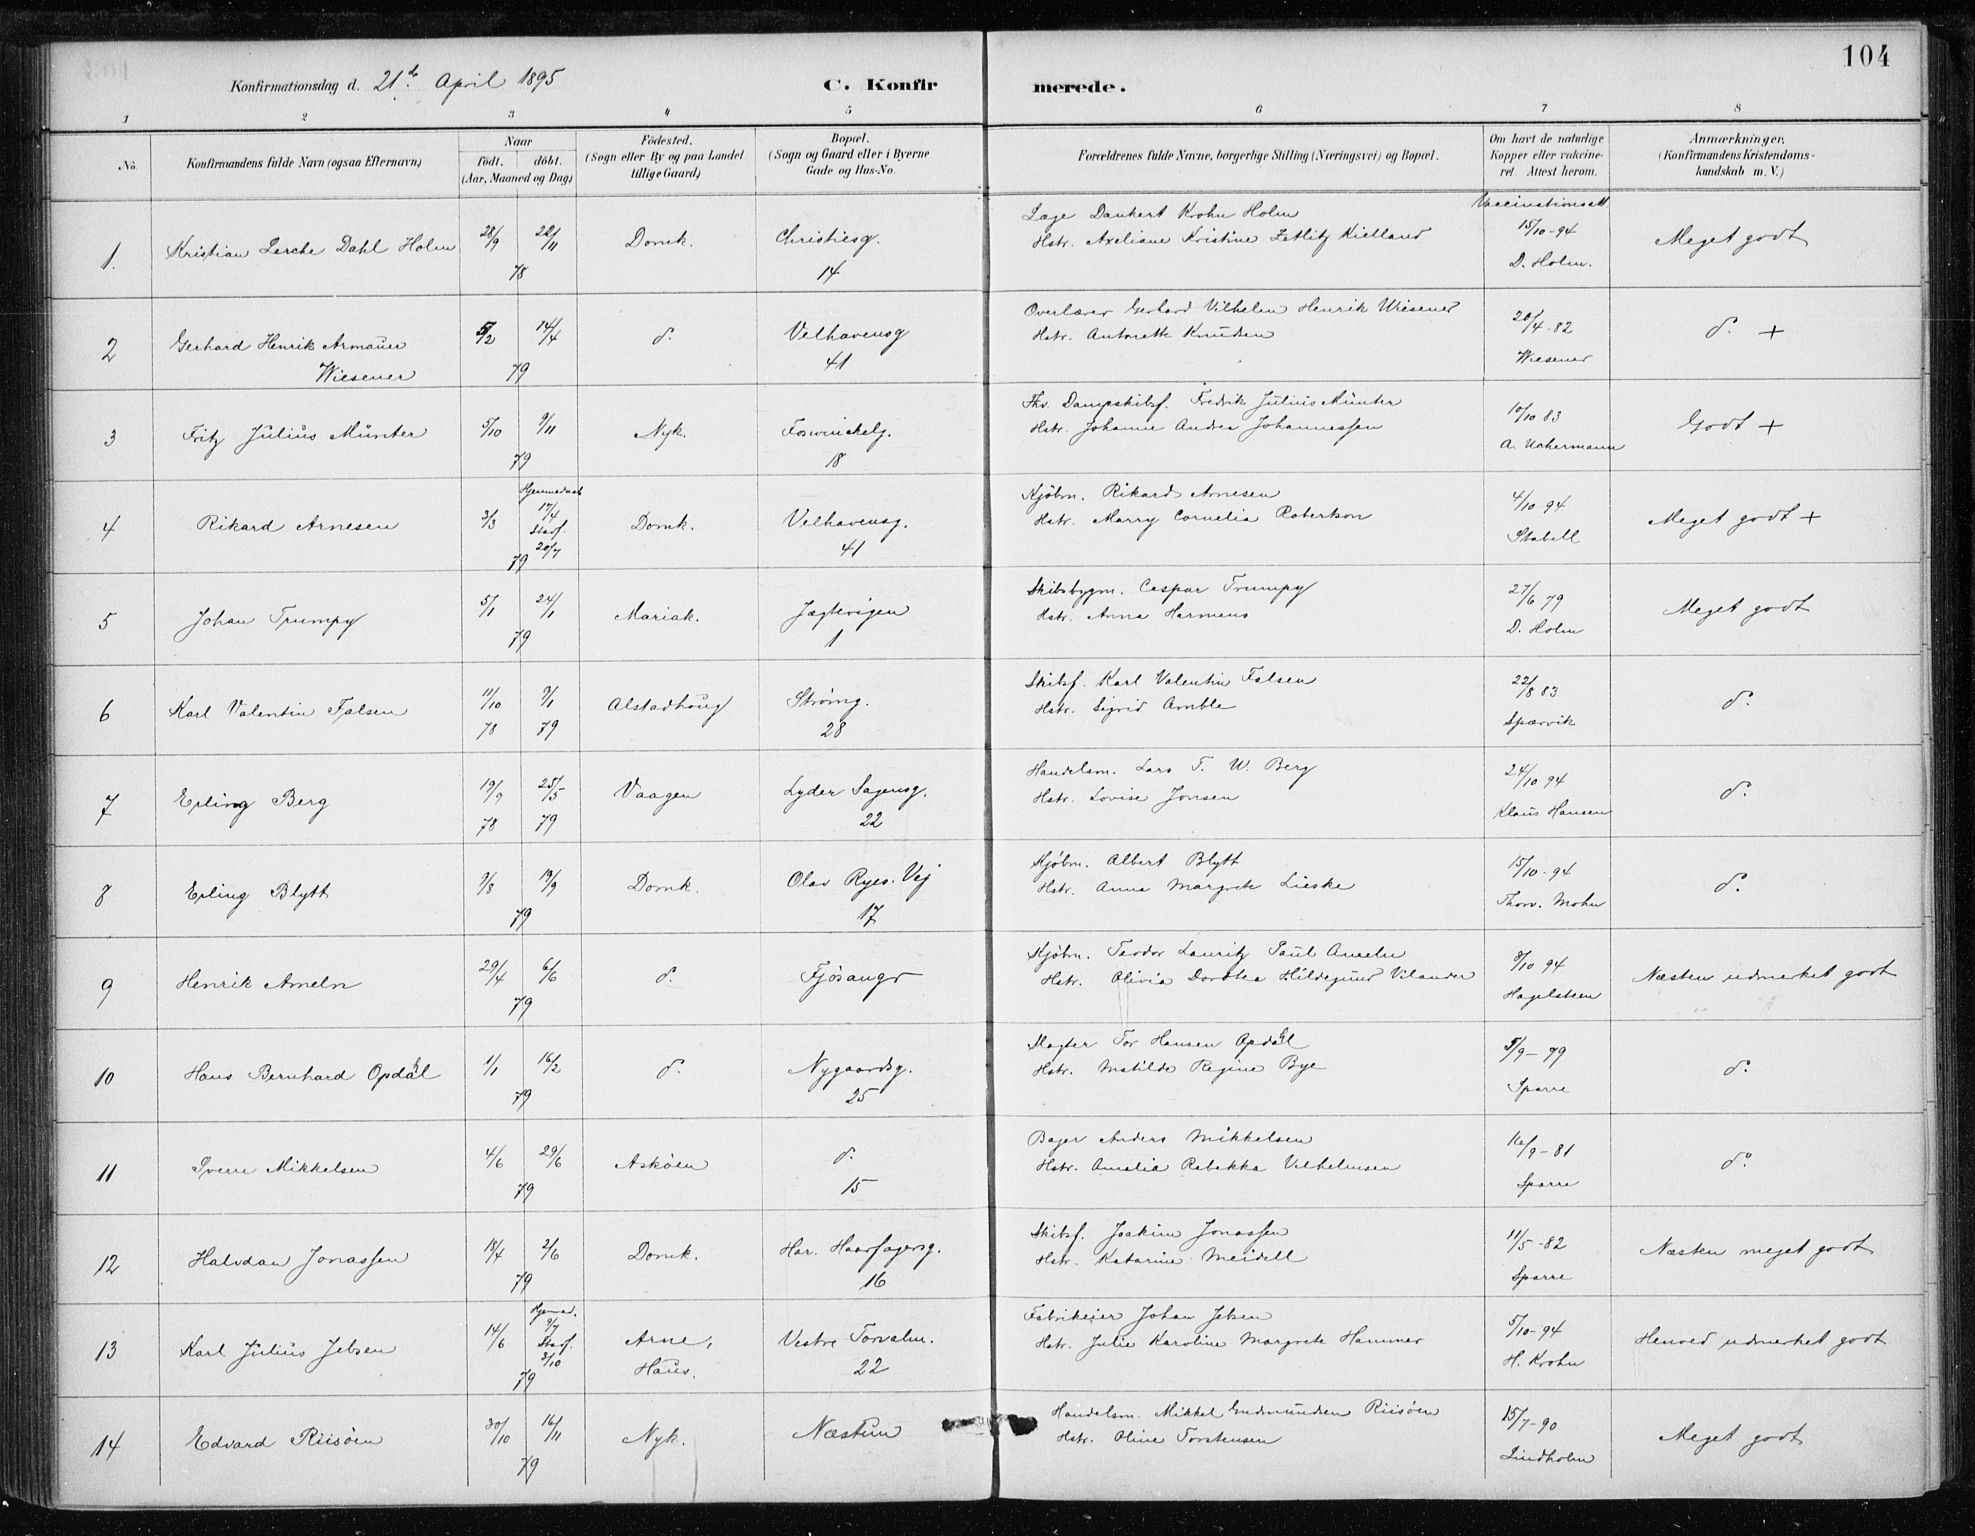 104
Konfirmationsdag d. 21de April 1895 C. Konfirmerede.
1 2 3 4 5 6 7 8
No.
Konfirmandens fulde Navn (ogsaa Efternavn)
Naar
födt. döbt.
(Aar, Maaned og Dag)
Födested.
(Sogn eller By og paa Landet
tillige Gaard)
Bopæl.
(Sogn og Gaard eller i Byerne
Gade og Hus-No.
Forældrenes fulde Navne, borgerlige Stilling (Næringsvei) og Bopæl.
Om havt de naturlige
Kopper eller vakcine-
ret. Attest herom.
Anmærkninger.
(Konfirmandens Kristendoms-
kundskab m. V.)
1. Kristian Lerche Dahl Holm 28/9 78 Domk. Christiesg. 14
Læge Dankert Krohn Holm
Hstr. Axeliane Kristine Zetlitz Kielland
Vaccinationsatt 15/10-94 D. Holm.
Meget godt
2 Gerhard Henrik Armauer
Wiesener
5/2 14/4 79 do. Velhavensg 41
Overlærer Gerhard Vilhelm Henrik Wiesener
Hstr. Antonette Knudsen
20/4-82 Wiesener
do. +
3 Fritz Julius Münter 5/10 9/11 79 Nyk. Foswinckelg. 18
Fhv. Dampskibsf. Fredrik Julius Münter
Hstr. Johanne Andrea Johannessen
10/10 83 A. Uchermann
Godt +
4 Rikard Arnesen 3/3 Hjemmedøbt 17/4 Stadf. 20/7 79 Domk. Velhavensg. 41
Kjøbm. Rikard Arnesen
Hstr. Marry Cornelia Robertson
4/10 94 Stabell
Meget godt +
5 Johan Trumpy 5/1 24/1 79 Mariak. Jægtevigen 1
Skibsbygm. Caspar Trumpy
Hstr. Anna Harmens
27/6 79 D. Holm
Meget godt
6 Karl Valentin Falsen 11/10 78 9/1 79 Alstadhoug Strømg. 28
Skibsf. Karl Valentin Falsen
Hstr. Sigrid Amble
22/8 83 Spærvik
do.
7 Erling Berg 19/9 78 25/5 79 Vaagen Lyder Sagensg. 22
Handelsm. Lars T. W. Berg
Hstr. Lovise Jonsen
24/10 94 Klaus Hansen
do.
8 Erling Blytt 9/8 19/9 79 Domk. Olav Ryes. Vej 17
Kjøbm. Albert Blytt
Hstr. Anna Margrete Lieske
15/10-94 Thorv. Mohn
do.
9 Henrik Ameln 29/4 6/6 79 do. Fjøsanger
Kjøbm. Teodor Lauritz Paul Ameln
Hstr. Olivia Dorotea Hildegund Vilander
8/10 94 Hagelsteen
Næsten udmerket godt
10 Hans Bernhard Opdal 1/1 16/2 79 do. Nygaardsg. 25
Slagter Tor Hansen Opdal
Hstr. Matilde Regine Bye
5/9-79 Sparre
do.
11 Sverre Mikkelsen 4/6 29/6 79 Askøen do. 15
Bager Anders Mikkelsen
Hstr. Amalia Rebekka Vilhelmsen
16/9-81 Sparre
do.
12 Halvdan Jonassen 18/4 2/6 79 Domk. Har. Haarfagersg. 16
Skibsf. Joakim Jonassen
Hstr. Katarine Meidell
11/5-82 Sparre
Næsten meget godt
13 Karl Julius Jebsen 14/6 Hjemmed. 9/7 Stadf. 3/10 79 Arne, Haus. Vestre Torvalm. 22
Fabrikeier Johan Jebsen
Hstr. Julie Karoline Margrete Hammer
5/10-94 H. Krohn
Henved udmerket godt
14 Edvard Riisöen 30/10 16/11 79 Nyk. Næstun
Handelsm. Mikkel Gudmundsen Riisöen
Hstr. Oline Torstensen
15/7-90 Lindholm
Meget godt